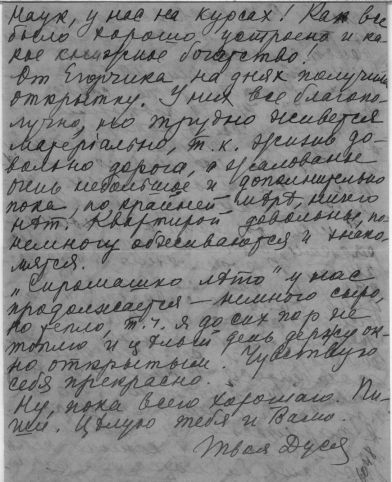 Наук, у нас на курсах! Как все
было хорошо устроено и ка-
кое книжное богатство!
От Егорчика на днях получили
открытку. У них все благопо-
лучно, но трудно живется
материально, т. к. жизнь до-
вольно дорога, а жалованье
очень небольшое и дополнительно
пока, по крайней мѣрѣ, ничего
нѣт. Квартирой довольны, по-
немногу обживаются и знако-
мятся.
„Сиромашко лѣто" у нас
продолжается — немного сыро,
но тепло, т. ч. я до сих пор не
топлю и цѣлый день держу ок-
но открытым. Чувствую
себя прекрасно.
Ну, пока всего хорошаго. Пи-
ши. Цѣлую тебя и Валю.
Твоя Дуся